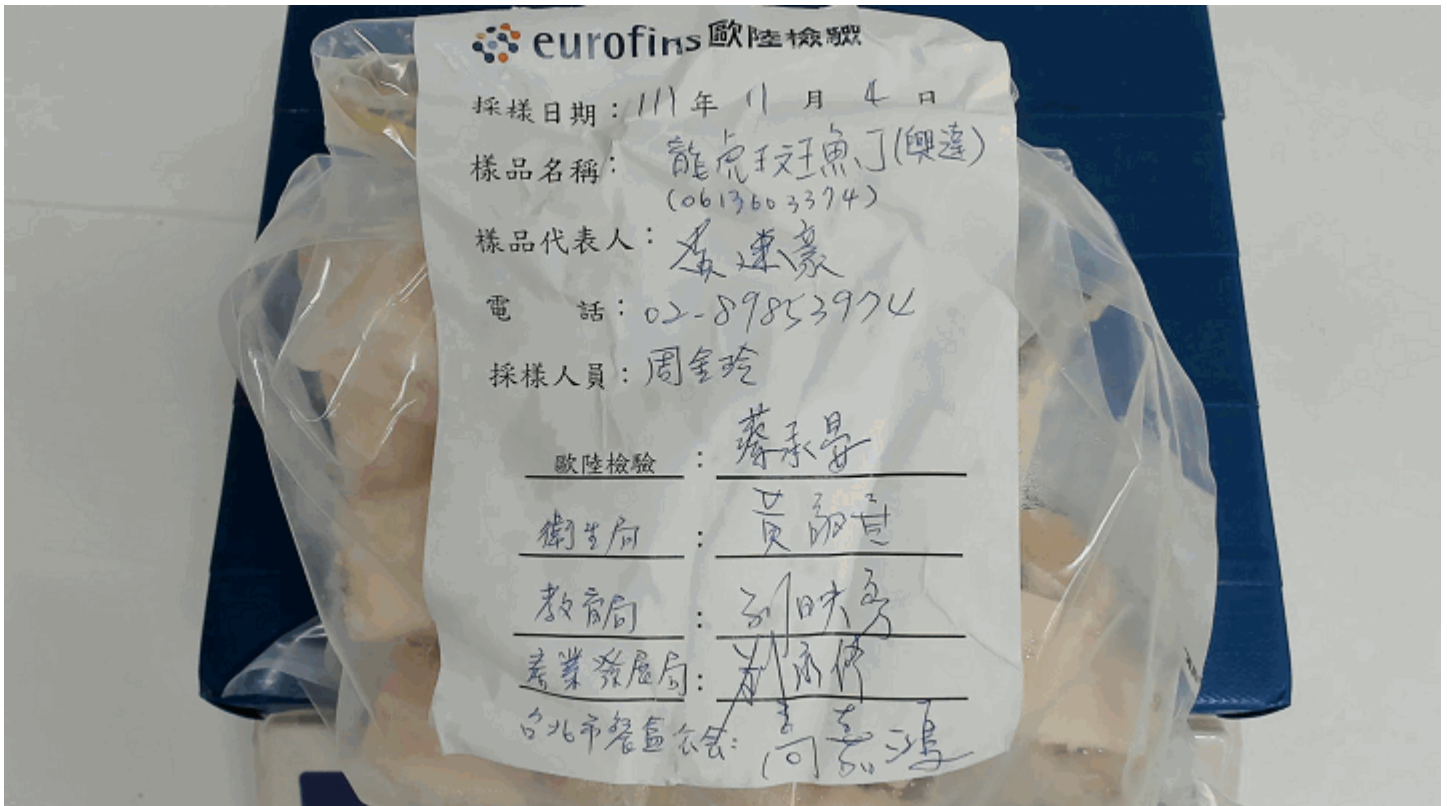 eurofins 歐陸檢驗
採樣日期：111年11月4日
樣品名稱：龍虎斑魚丁(興達)
(0613603374)
樣品代表人：
電 話：02-89853974
採樣人員：周金玲
歐陸檢驗：蔡承晏
衛生局：黃
教育局：劉映
產業發展局：
台北市餐盒公會：高嘉鴻